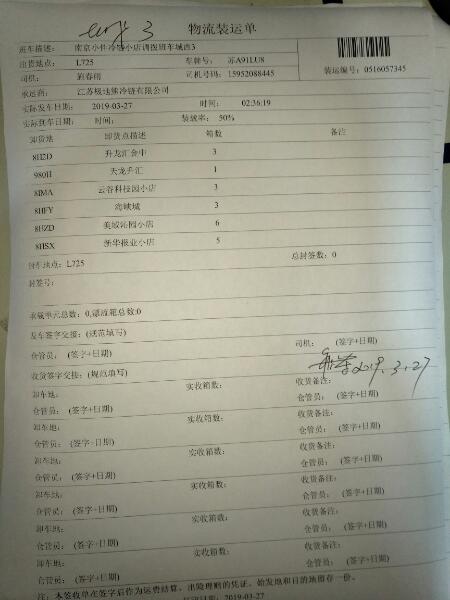 3
物流装运单
班车描述: 南京小件冷链小店调拨班车城西3
出货地点: L725 车牌号: 苏A91LU8
司机: 施春雨 司机号码: 15952088445 装运编号: 0516057345
承运商: 江苏极地熊冷链有限公司
实际发车日期: 2019-03-27 时间: 02:36:19
实际到车日期: 时间: 装载率: 50%
卸货地 卸货点描述 箱数 备注
8HZD 升龙汇金中 3
980H 天龙升汇 1
8IMA 云谷科技园小店 3
8HFY 海峡城 3
8HZD 美域沁园小店 6
8HSX 新华报业小店 5
封车地点: L725 总封签数: 0
封签号:
承载单元总数: 0,漂流箱总数:0
发车签字交接: (规范填写)
仓管员: (签字+日期) 司机: (签字+日期)
2019.3.27
收货签字交接: (规范填写)
卸车地: 实收箱数: 收货备注:
仓管员: (签字+日期) 仓管员: (签字+日期)
卸车地: 实收箱数: 收货备注:
仓管员: (签字+日期) 仓管员: (签字+日期)
卸车地: 实收箱数: 收货备注:
仓管员: (签字+日期) 仓管员: (签字+日期)
卸车地: 实收箱数: 收货备注:
仓管员: (签字+日期) 仓管员: (签字+日期)
卸车地: 实收箱数: 收货备注:
仓管员: (签字+日期) 仓管员: (签字+日期)
卸车地: 实收箱数: 收货备注:
仓管员: (签字+日期) 仓管员: (签字+日期)
注: 本签收单在签字后作为运费结算、出险理赔的凭证, 始发地和目的地留存一份。
2019-03-27